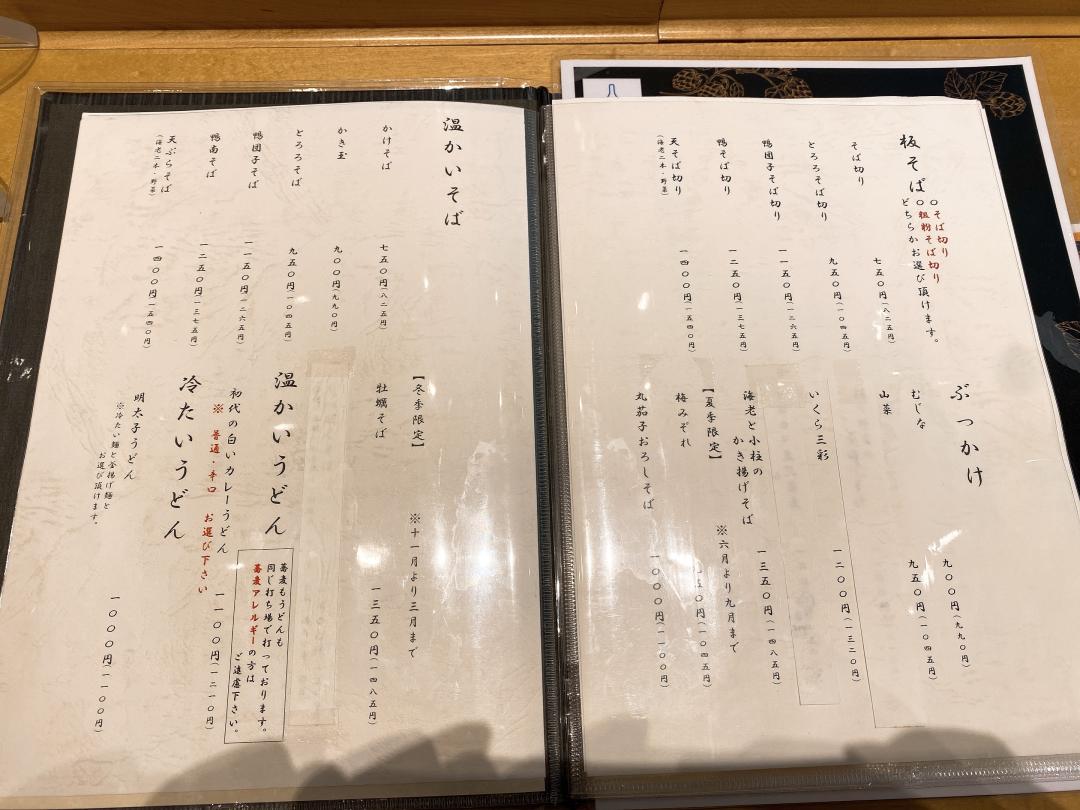 板そば
○そば切り
○粗粉そば切り
どちらかお選び頂けます。
そば切り 七五〇円(八二五円)
とろろそば切り 九五〇円(一〇四五円)
鴨団子そば切り 一一五〇円(一二六五円)
鴨そば切り 一二五〇円(一三七五円)
天そば切り 一四〇〇円(一五四〇円)
(海老二本・野菜)
ぶっかけ
むじな 九〇〇円(九九〇円)
山菜 九五〇円(一〇四五円)
いくら三彩 一二〇〇円(一三二〇円)
海老と小柱の
かき揚げそば 一三五〇円(一四八五円)
【夏季限定】 ※六月より九月まで
梅みぞれ 五〇円(一〇四五円)
丸茄子おろしそば 一〇〇〇円(一一〇〇円)
温かいそば
かけそば 七五〇円(八二五円)
かき玉 九〇〇円(九九〇円)
とろろそば 九五〇円(一〇四五円)
鴨団子そば 一一五〇円(一二六五円)
鴨南そば 一二五〇円(一三七五円)
天ぷらそば 一四〇〇円(一五四〇円)
(海老二本・野菜)
【冬季限定】 ※十一月より三月まで
牡蠣そば 一三五〇円(一四八五円)
温かいうどん
初代の白いカレーうどん 一一〇〇円(一二一〇円)
※ 普通・辛口 お選び下さい
蕎麦もうどんも
同じ打ち場で打っております。
蕎麦アレルギーの方は
ご遠慮下さい。
冷たいうどん
明太子うどん 一〇〇〇円(一一〇〇円)
※冷たい麺と釜揚げ麺と
お選び頂けます。